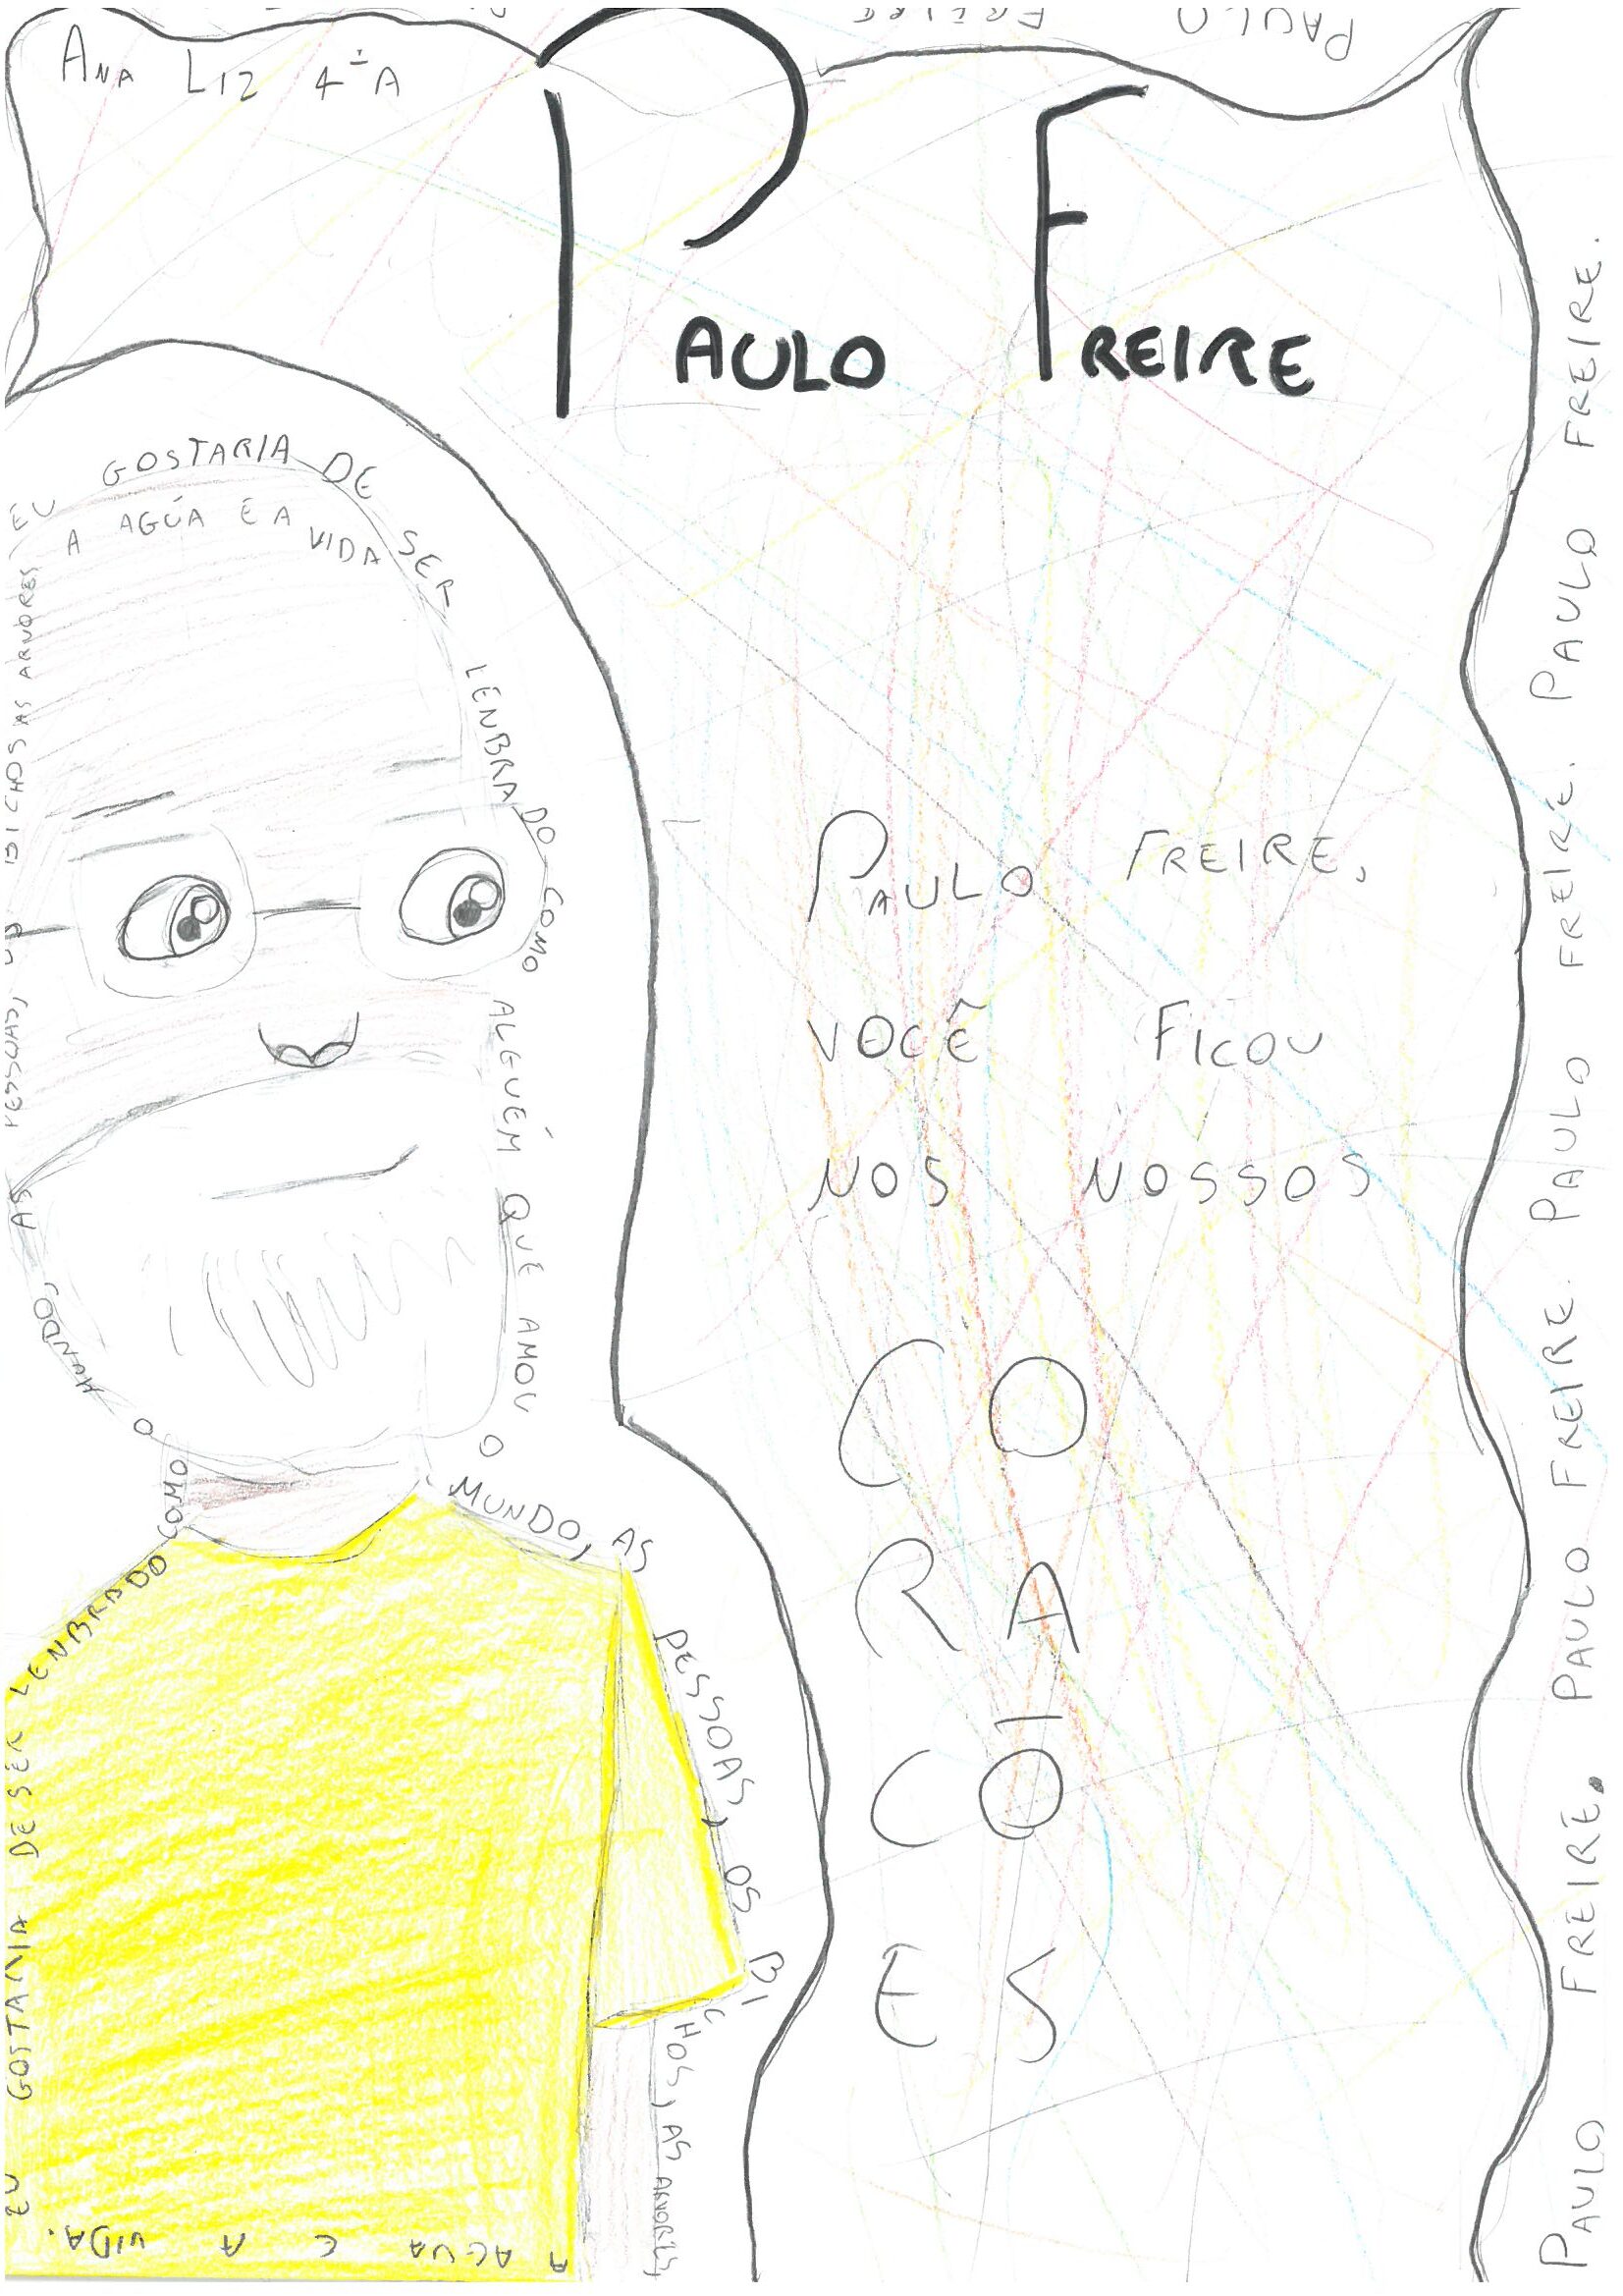 PAULO FREIRE
ANA LIZ 4ªA
PAULO FREIRE
EU GOSTARIA DE SER LENBRADO COMO ALGUÉM QUE AMOU O MUNDO, AS PESSOAS, OS BICHOS, AS ARVORES,
A AGÚA E A VIDA
PAULO FREIRE,
VOCÊ FICOU
NOS NOSSOS
CO
RA
CÕ
ES
EU GOSTARIA DE SER LENBRADO COMO O MUNDO, AS PESSOAS, OS BICHOS AS ARVORES
A AGUA E A VIDA.
PAULO FREIRE. PAULO FREIRE. PAULO FREIRE. PAULO FREIRE. PAULO FREIRE.